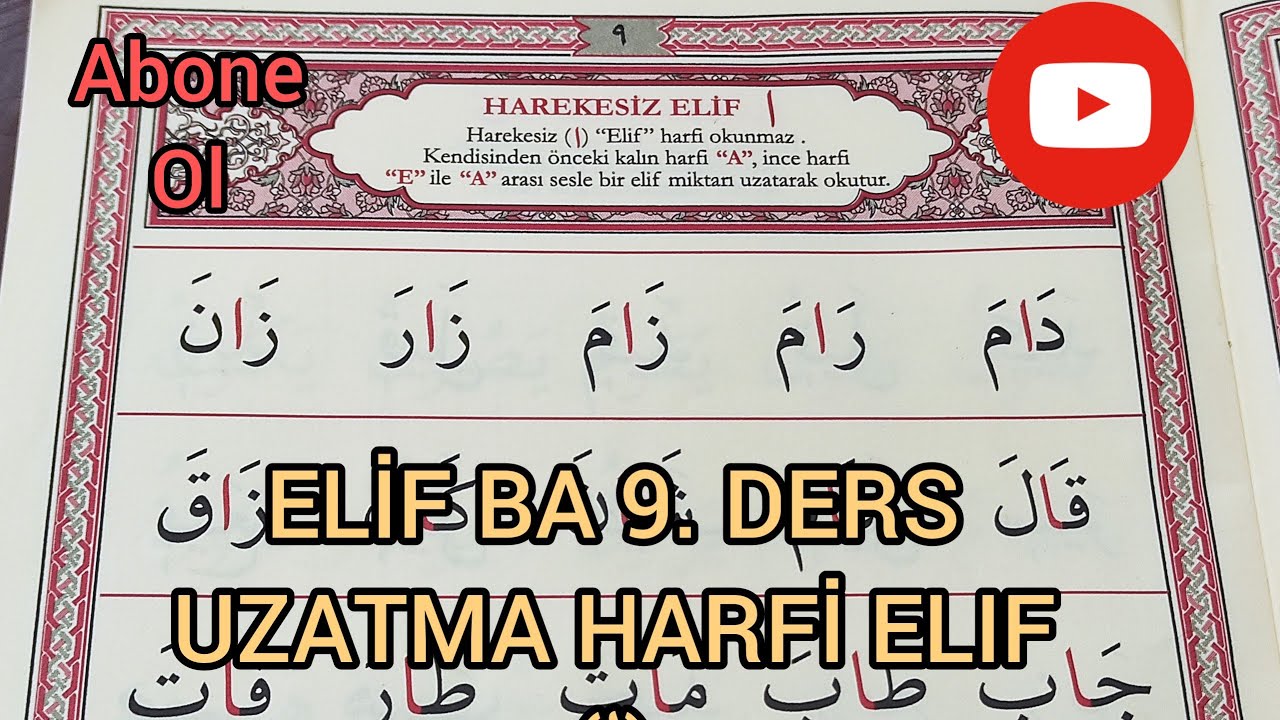 ٩
Abone
Ol
HAREKESİZ ELİF ا
Harekesiz (ا) “Elif” harfi okunmaz .
Kendisinden önceki kalın harfi “A”, ince harfi
“E” ile “A” arası sesle bir elif miktarı uzatarak okutur.
دَامَ رَامَ زَامَ زَارَ زَانَ
قَالَ زَاقَ
ELİF BA 9. DERS
UZATMA HARFİ ELIF
جَابَ طَابَ مَاتَ طَارَ فَاتَ